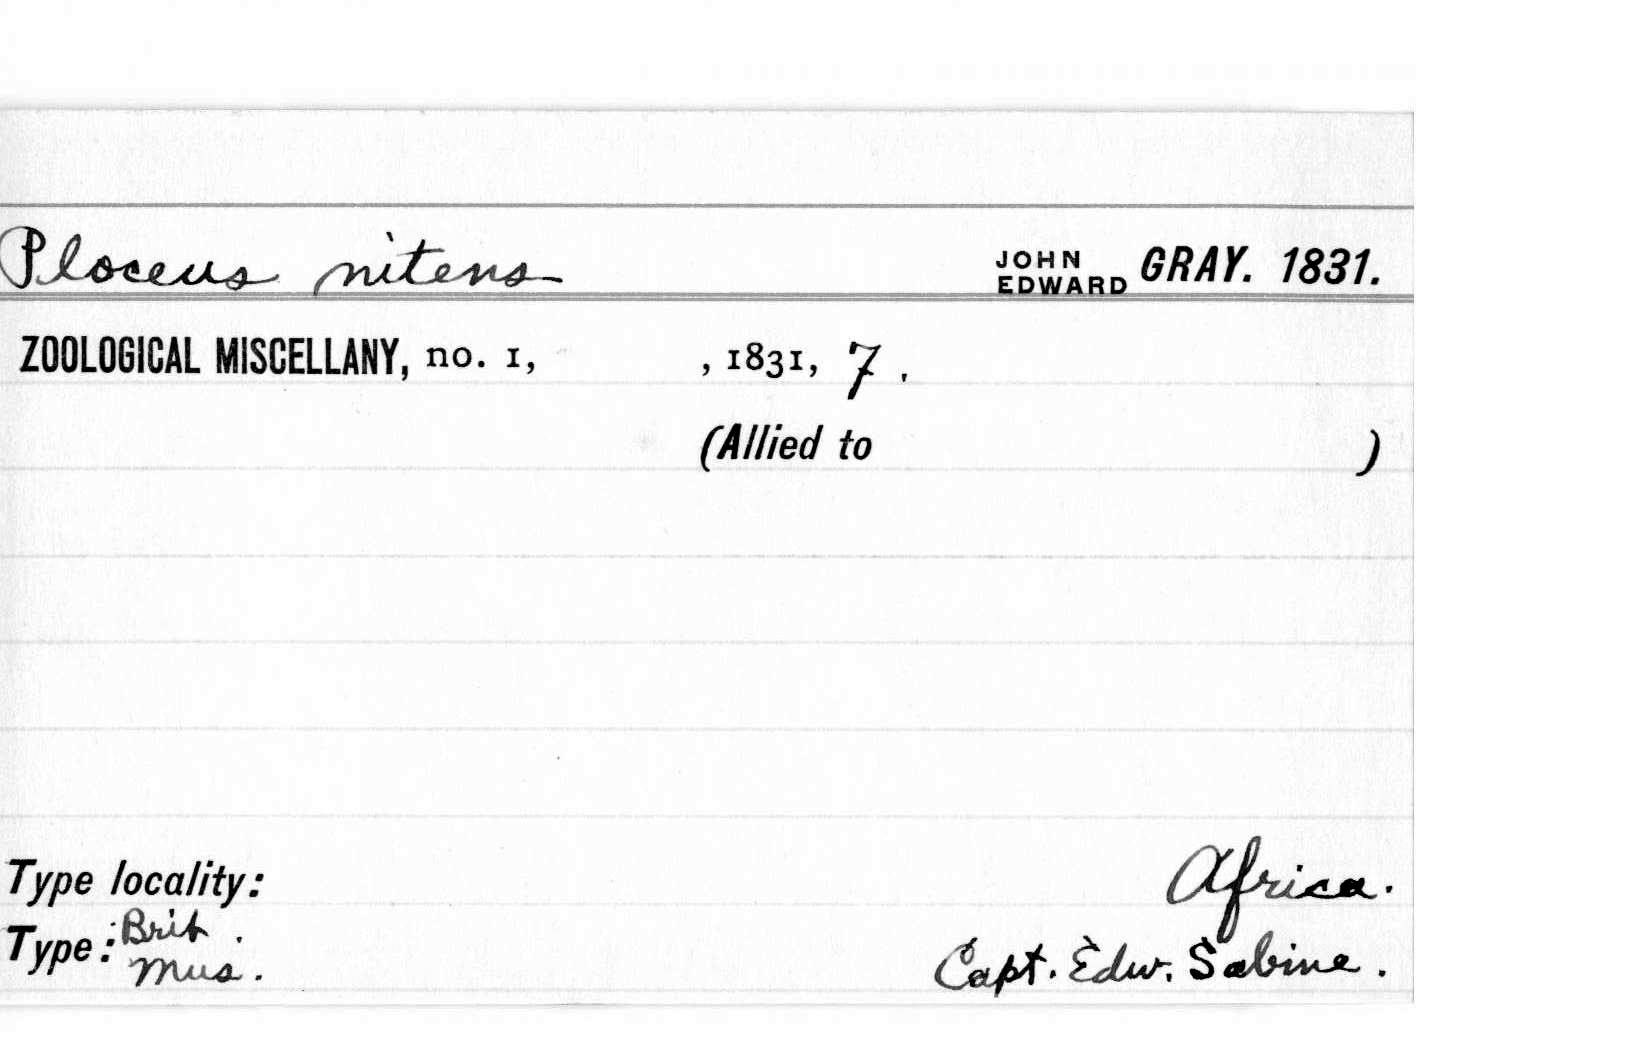 Ploceus nitens JOHN EDWARD GRAY. 1831.
ZOOLOGICAL MISCELLANY, no. 1, , 1831, 7.
(Allied to )
Type locality: Africa.
Type: Brit. Mus. Capt. Edw. Sabine.